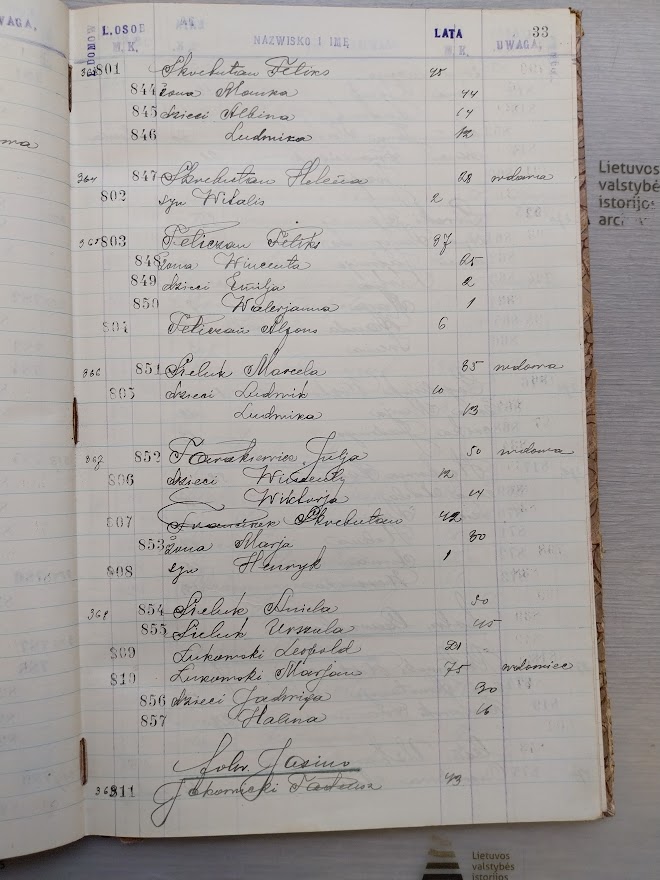 WAGA.
33
DOMÓW L. OSÓB M. K. NAZWISKO I IMĘ LATA M. K. UWAGA.
363 801 Skrebutan Feliks 45
844 żona Monika 44
845 dzieci Albina 14
846 Ludmika 12
364 847 Skrebutan Helena 28 wdowa
802 syn Witalis 2
365 803 Feliczan Feliks 37
848 żona Wincenta 25
849 dzieci Emilja 2
850 Walerjanna 1
804 Feliczan Alfons 6
366 851 Sieluk Marcela 35 wdowa
805 dzieci Ludwik 10
Ludwika 13
367 852 Tarakiewicz Julja 50 wdowa
806 dzieci Wincenty 12
Wiktorja 14
807 Franciszek Skrebutan 42
853 żona Marja 30
808 syn Henryk 1
368 854 Sieluk Aniela 50
855 Sieluk Urszula 45
809 Łukomski Leopold 21
810 Łukomski Marjan 75 wdowiec
856 dzieci Jadwiga 20
857 Halina 16
folw. Jasino
369 811 Tadeusz 43
Lietuvos
valstybės
istorijos
arc
Lietuvos
valstybės
istorijos